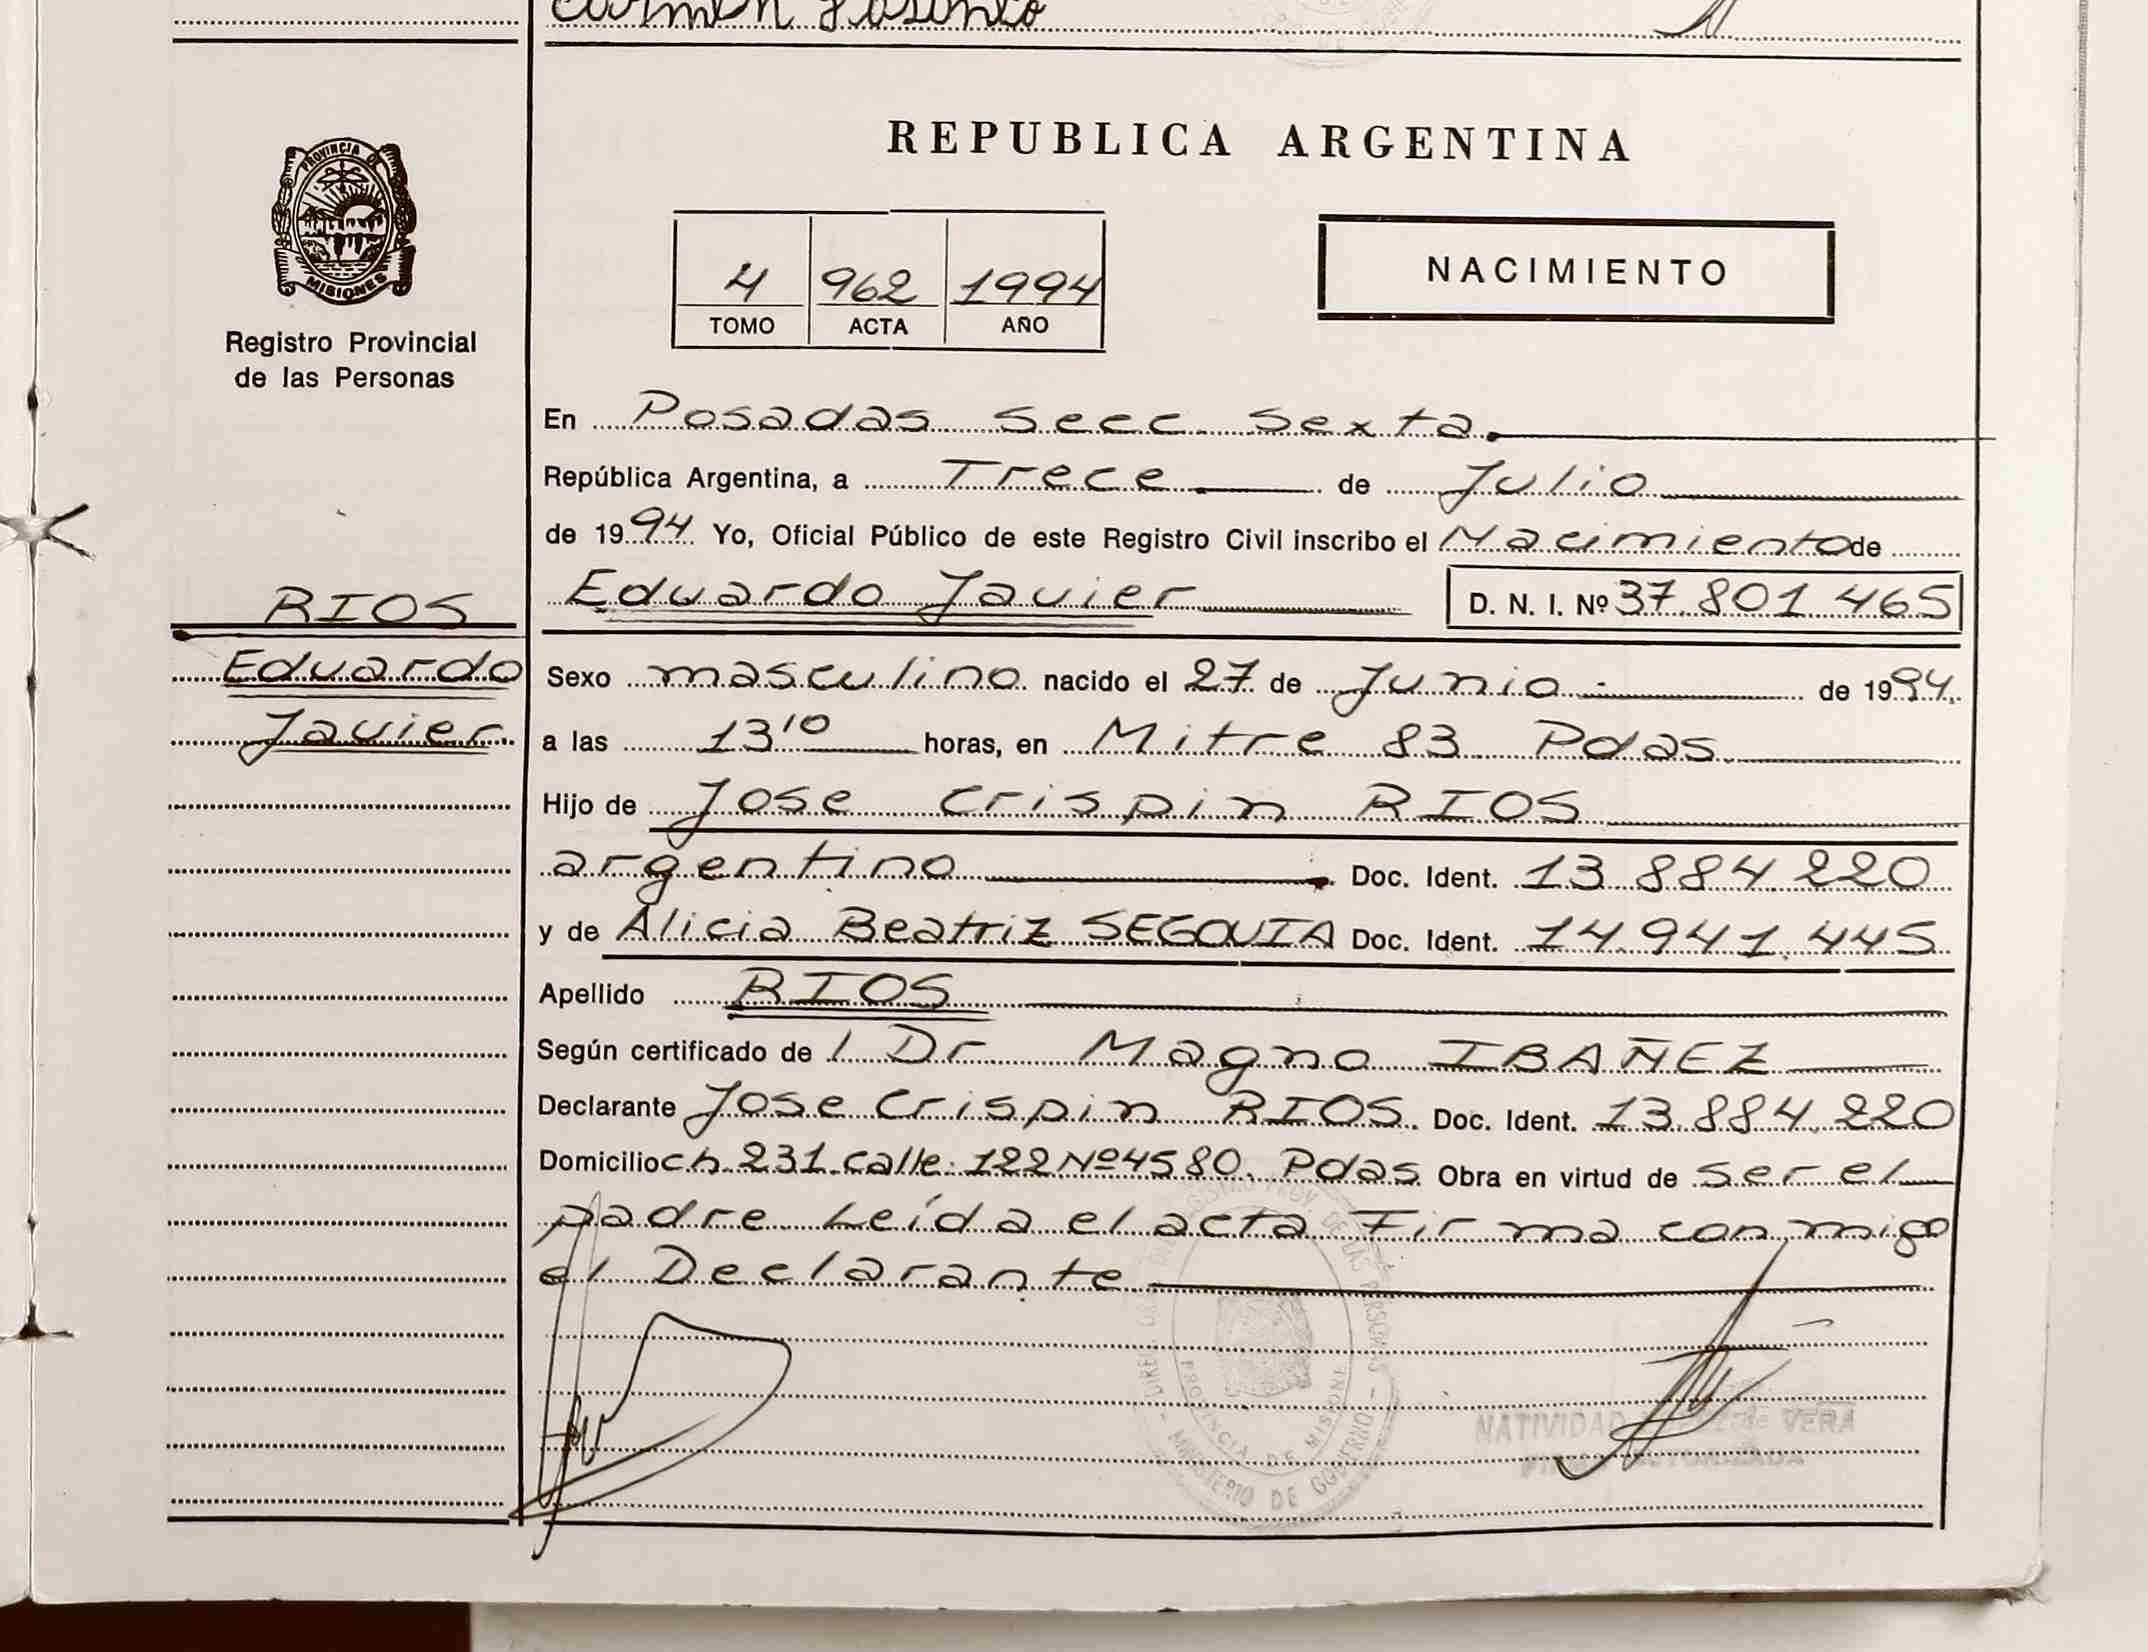 Carmen
PROVINCIA DE
MISIONES
Registro Provincial
de las Personas
REPUBLICA ARGENTINA
4 962 1994
TOMO ACTA AÑO
NACIMIENTO
En Posadas Secc. Sexta.
República Argentina, a Trece de Julio
de 1994 Yo, Oficial Público de este Registro Civil inscribo el Nacimiento de
RIOS
Eduardo Javier D. N. I. Nº 37.801.465
Eduardo
Javier.
Sexo masculino nacido el 27 de Junio de 1994.
a las 13¹⁰ horas, en Mitre 83 Pdas
Hijo de Jose Crispin RIOS
argentino Doc. Ident. 13.884.220
y de Alicia Beatriz SEGOVIA Doc. Ident. 14.941.445
Apellido RIOS
Según certificado de l Dr Magno IBAÑEZ
Declarante Jose Crispin RIOS. Doc. Ident. 13.884.220
Domicilio ch. 231 calle: 122 Nº 4580. Pdas Obra en virtud de ser el
padre Leída el acta Firma conmigo
el Declarante
DE LAS PERSONAS
PROVINCIA DE MISIONES
- MINISTERIO DE GOBIERNO -
NATIVIDAD VERA
AUTORIZADA